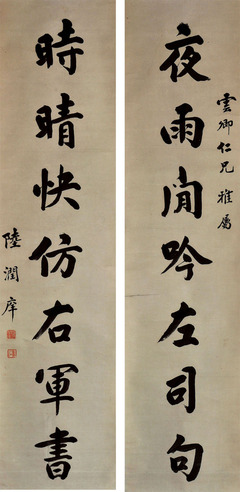 雲卿仁兄雅屬
夜雨閒吟左司句
時晴快仿右軍書
陸潤庠